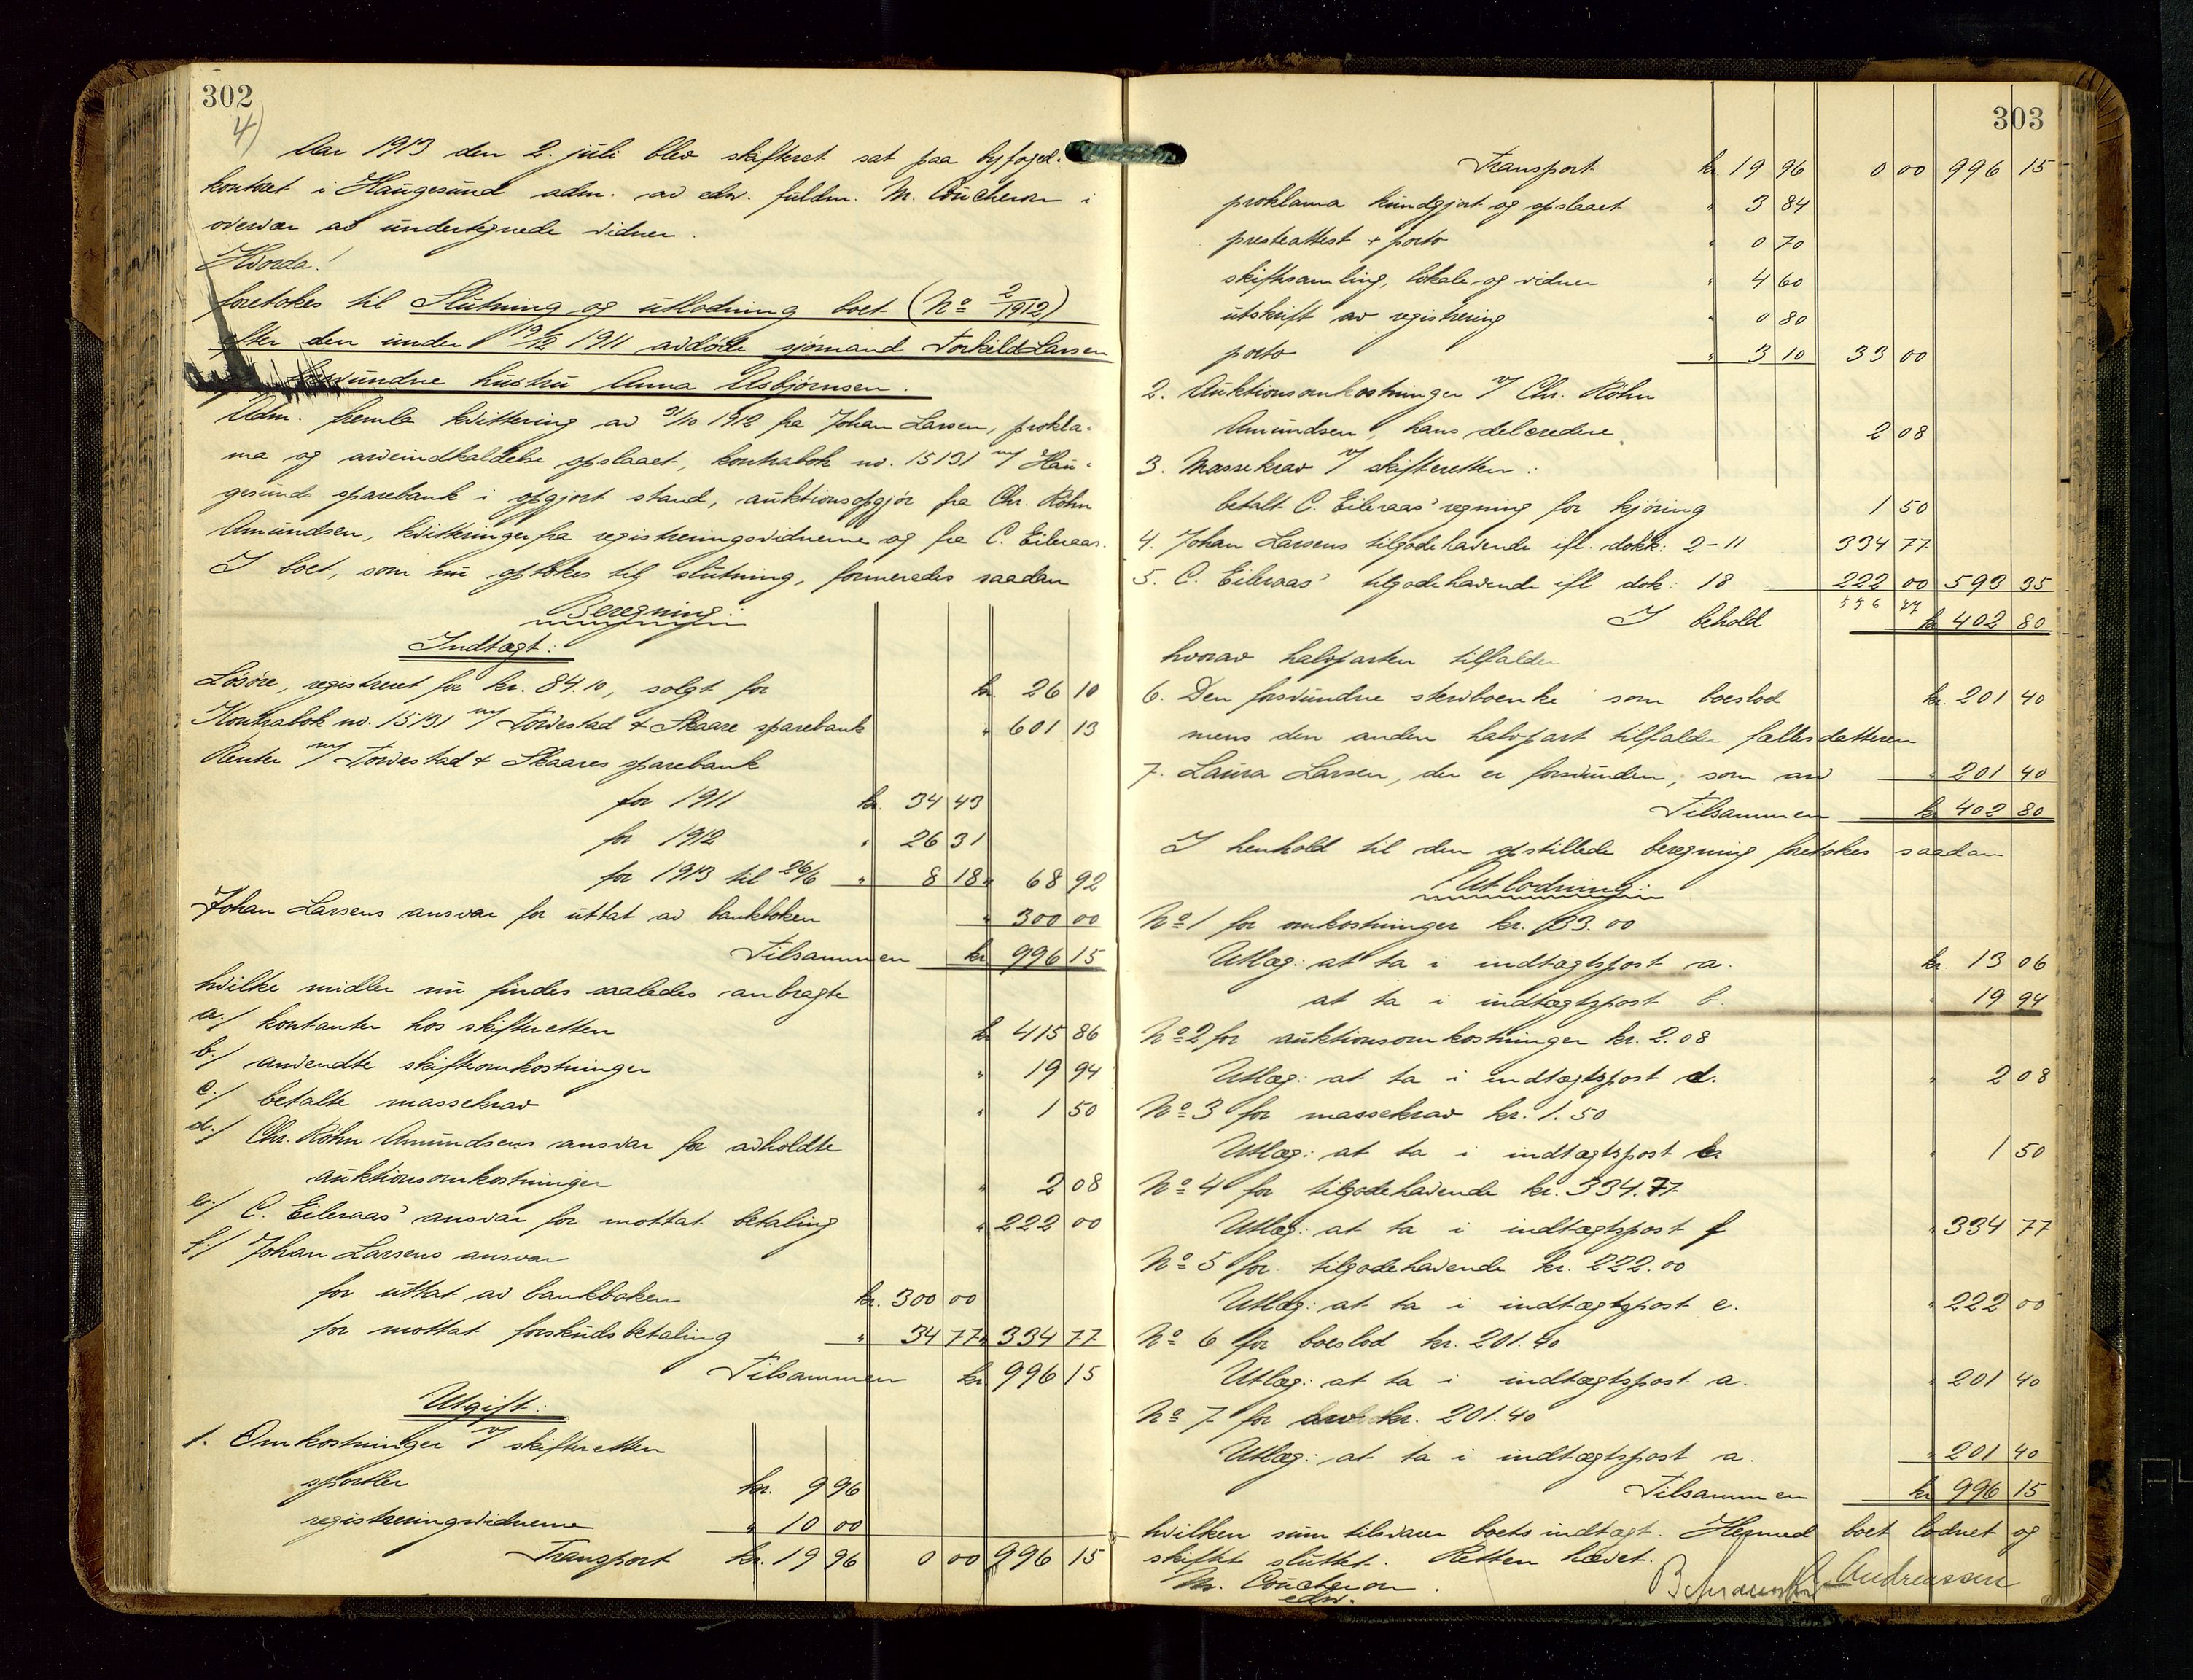 302
4)
Aar 1913 den 2. juli blev skifteret sat paa byfoged-
kontoret i Haugesund adm. av edsv. fuldm. M. Coucheron i
overvær av undertegnede vidner.
Hvorda!
foretokes til Slutning og utlodning boet (No 2/1912)
efter den under 19/12 1911 avdöde sjömand Torkild Larsen
hustru Anna Asbjørnsen.
Adm. fremla kvittering av 31/10 1912 fra Johan Larsen, prokla-
ma og arveindkaldelse opslaaet, kontrabok no. 15131 m/ Hau-
gesunds sparebank i opgjort stand, auktionsopgjör fra Chr. Röhn
Amundsen, kvitteringer fra registreringsvidnerne og fra C. Eileraas.
I boet, som nu optokes til slutning, formeredes saadan
Beregning:
Indtægt:
Lösöre, registreret for kr. 84.10, solgt for kr. 26 10
Kontrabok no. 15131 m/ Torvestad & Skaare sparebank " 601 13
Renter m/ Torvestad & Skaares sparebank
for 1911 kr. 34 43
for 1912 " 26 31
for 1913 til 26/6 " 8 18 " 68 92
Johan Larsens ansvar for uttat av bankboken " 300 00
Tilsammen kr. 996 15
hvilke midler nu findes saaledes anbragte
a./ kontanter hos skifteretten kr. 415 86
b./ anvendte skifteomkostninger " 19 94
c./ betalte massekrav " 1 50
d./ Chr. Röhn Amundsens ansvar for avholdte
auktionsomkostninger " 2 08
e./ C. Eileraas' ansvar for mottat betaling " 222 00
f./ Johan Larsens ansvar
for uttat av bankboken kr. 300 00
for mottat forskudsbetaling " 34 77 " 334 77
Tilsammen kr. 996 15
Utgift:
1. Omkostninger v/ skifteretten
sportler kr. 9 96
registreringsvidnerne " 10 00
Transport kr. 19 96 0 00 996 15
303
Transport kr. 19 96 0 00 996 15
proklama kundgjort og opslaaet " 3 84
presteattest + porto " 0 70
skiftesamling, lokale og vidner " 4 60
utskrift av registrering " 0 80
porto " 3 10 33 00
2. Auktionsomkostninger v/ Chr. Röhn
Amundsen, hans delcredere 2 08
3. Massekrav v/ skifteretten:
betalt C. Eileraas' regning for kjöring 1 50
4. Johan Larsens tilgodehavende ifl. dokk: 2-11 334 77
5. C. Eileraas' tilgodehavende ifl dok: 18 222 00 593 35
556 77
I behold kr. 402 80
hvorav halvparten tilfalder
6. Den forsvundne skevboenke som boeslod kr. 201 40
mens den anden halvpart tilfalder fællesdatteren
7. Laura Larsen, der er forsvunden, som arv " 201 40
Tilsammen kr. 402 80
I henhold til den opstillede beregning foretokes saadan
Utlodning:
No 1 for omkostninger kr. 33.00
Utlæg: at ta i indtægtspost a. kr. 13 06
at ta i indtægtspost b. " 19 94
No 2 for auktionsomkostninger kr. 2.08
Utlæg: at ta i indtægtspost d. " 2 08
No 3 for massekrav kr. 1.50
Utlæg: at ta i indtægtspost c " 1 50
No 4 for tilgodehavende kr. 334.77
Utlæg: at ta i indtægtspost f " 334 77
No 5 for tilgodehavende kr. 222.00
Utlæg: at ta i indtægtspost e. " 222 00
No 6 for boeslod kr. 201.40
Utlæg: at ta i indtægtspost a. " 201 40
No 7 for arv kr. 201.40
Utlæg: at ta i indtægtspost a. " 201 40
Tilsammen kr. 996 15
hvilken sum tilsvarer boets indtægt. Hermed boet lodnet og
skiftet sluttet. Retten hævet.
M. Coucheron. Andreassen
edsv.